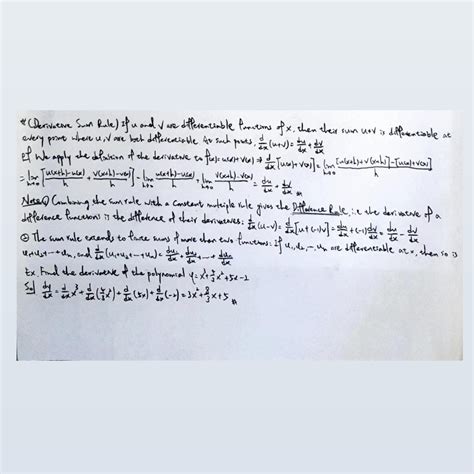 * (Derivative Sum Rule) If u and v are differentiable functions of x, then their sum u+v is differentiable at
every point where u, v are both differentiable. At such points, d/dx (u+v) = du/dx + dv/dx
Pf We apply the definition of the derivative to f(x) = u(x)+v(x) ⇒ d/dx [u(x)+v(x)] = lim h→0 [u(x+h)+v(x+h)]-[u(x)+v(x)] / h
= lim h→0 [u(x+h)-u(x) / h + v(x+h)-v(x) / h] = lim h→0 u(x+h)-u(x) / h + lim h→0 v(x+h)-v(x) / h = du/dx + dv/dx
Notes ① Combining the sum rule with a constant multiple rule gives the Difference Rule, i.e. the derivative of a
difference functions is the difference of their derivatives: d/dx (u-v) = d/dx [u+(-1)v] = du/dx + (-1) dv/dx = du/dx - dv/dx
② The sum rule extends to finite sums of more than two functions: If u₁, u₂, ..., uₙ are differentiable at x, then so is
u₁+u₂+...+uₙ, and d/dx (u₁+u₂+...+uₙ) = du₁/dx + du₂/dx + ... + duₙ/dx
Ex Find the derivative of the polynomial y = x³ + 4/3 x² + 5x - 2
Sol dy/dx = d/dx x³ + d/dx (4/3 x²) + d/dx (5x) + d/dx (-2) = 3x² + 8/3 x + 5